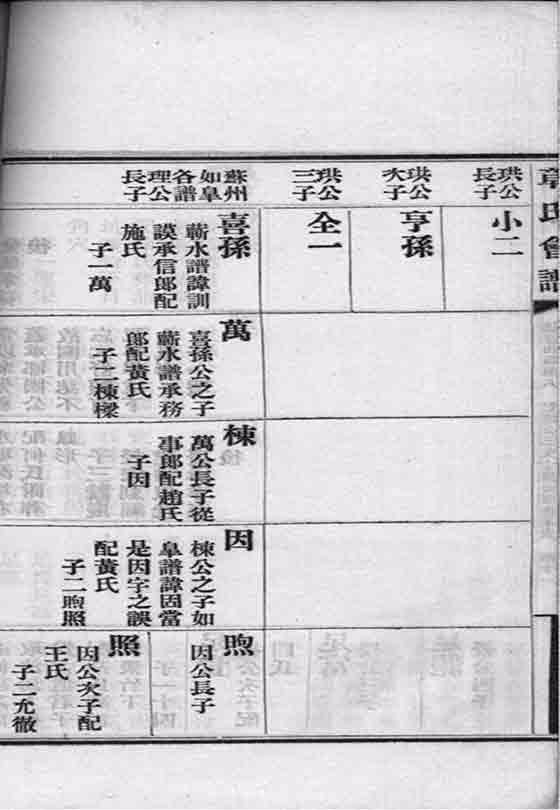 章氏會譜
珙公
長子
小二
珙公
次子
亨孫
珙公
三子
全一
蘇州
如皐
各譜
理公
長子
喜孫
蘄水譜諱訓
謨承信郎配
施氏
子一萬
萬
喜孫公之子
蘄水譜承務
郎配黃氏
子二棟樑
棟
萬公長子從
事郎配趙氏
子因
因
棟公之子如
皐譜諱固當
是因字之誤
配黃氏
子二煦照
煦
因公長子
照
因公次子配
王氏
子二允徹